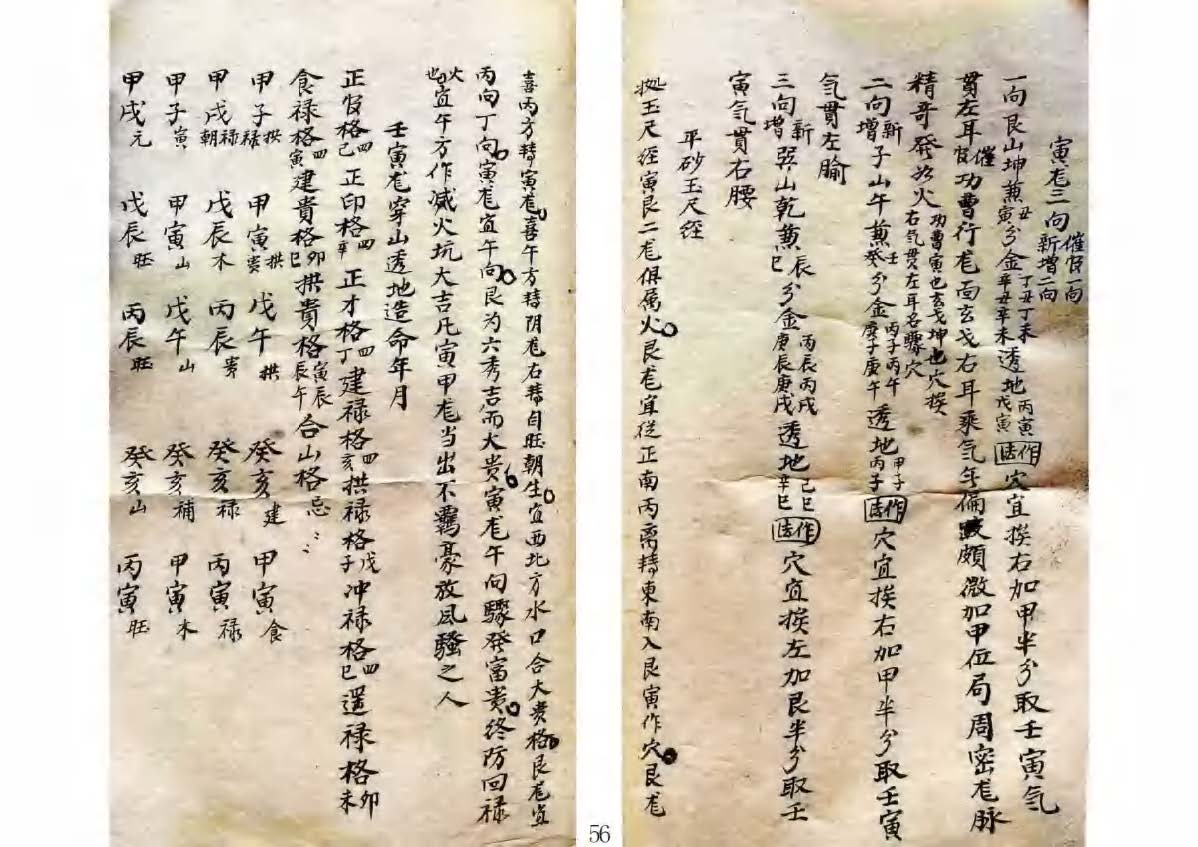 寅龙三向 催官一向 新增二向
一向艮山坤兼寅丑分金丁丑丁未辛丑辛未透地丙寅戊寅作法穴宜挨右加甲半分取壬寅气
贯左耳催官功曹行龙面玄戈右耳乘气无偏颇微加甲位局周密龙脉
精奇发如火功曹寅也玄戈坤也穴挨右气贯左耳名骤穴
二向新增子山午兼壬癸分金丙子丙午庚子庚午透地甲子丙子作法穴宜挨右加甲半分取壬寅
气贯左腧
三向新增巽山乾兼辰巳分金丙辰丙戌庚辰庚戌透地己巳辛巳作法穴宜挨左加艮半分取壬
寅气贯右腰
平砂玉尺经
玉尺经寅艮二龙俱属火艮龙宜从正南丙离转东南入艮寅作穴艮龙
喜丙方转寅龙喜午方转阴龙右转自旺朝生宜西北方水口合大贵格艮龙宜
丙向丁向寅龙宜午向艮为六秀吉而大贵寅龙午向骤发富贵终防回禄
火也宜午方作减火坑大吉凡寅甲龙当出不羁豪放风骚之人
壬寅龙穿山透地造命年月
正官格四己正印格四辛正才格四丁建禄格四亥拱禄格戊子冲禄格四巳遥禄格卯未
食禄格四寅建贵格卯巳拱贵格寅辰辰午合山格忌
甲子拱禄 甲寅拱贵 戊午拱 癸亥建 甲寅食
甲戌禄朝 戊辰木 丙辰贵 癸亥禄 丙寅禄
甲子寅 甲寅山 戊午山 癸亥补 甲寅木
甲戌元 戊辰旺 丙辰旺 癸亥山 丙寅旺
56